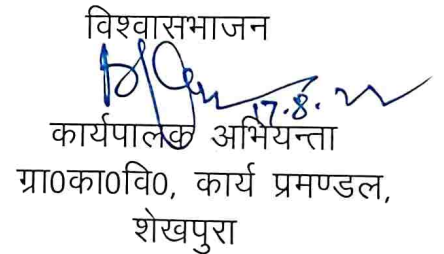 विश्वासभाजन
17.8.
कार्यपालक अभियन्ता
ग्रा0का0वि0, कार्य प्रमण्डल,
शेखपुरा